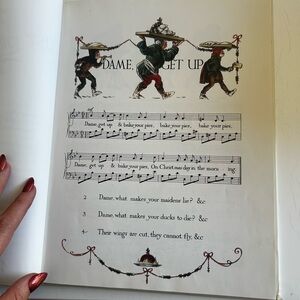 DAME, GET UP
Dame, get up & bake your pies, bake your pies, bake your pies,
Dame, get up & bake your pies, On Christmas day in the morning
2 Dame, what makes your maidens lie? &c
3 Dame, what makes your ducks to die? &c
4 Their wings are cut, they cannot fly, &c